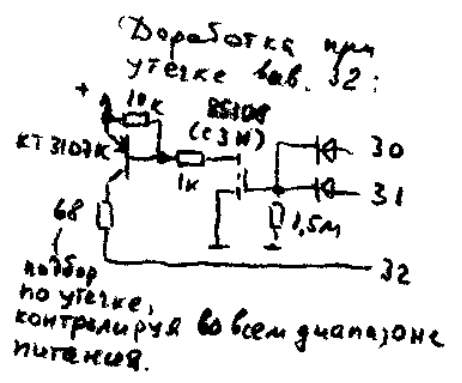 Доработка при
утечке выв. 32:
+
10к
BS108
(СЗН)
КТ3107К
1к
30
31
1,5м
68
32
подбор
по утечке,
контролируя во всем диапазоне
питания.